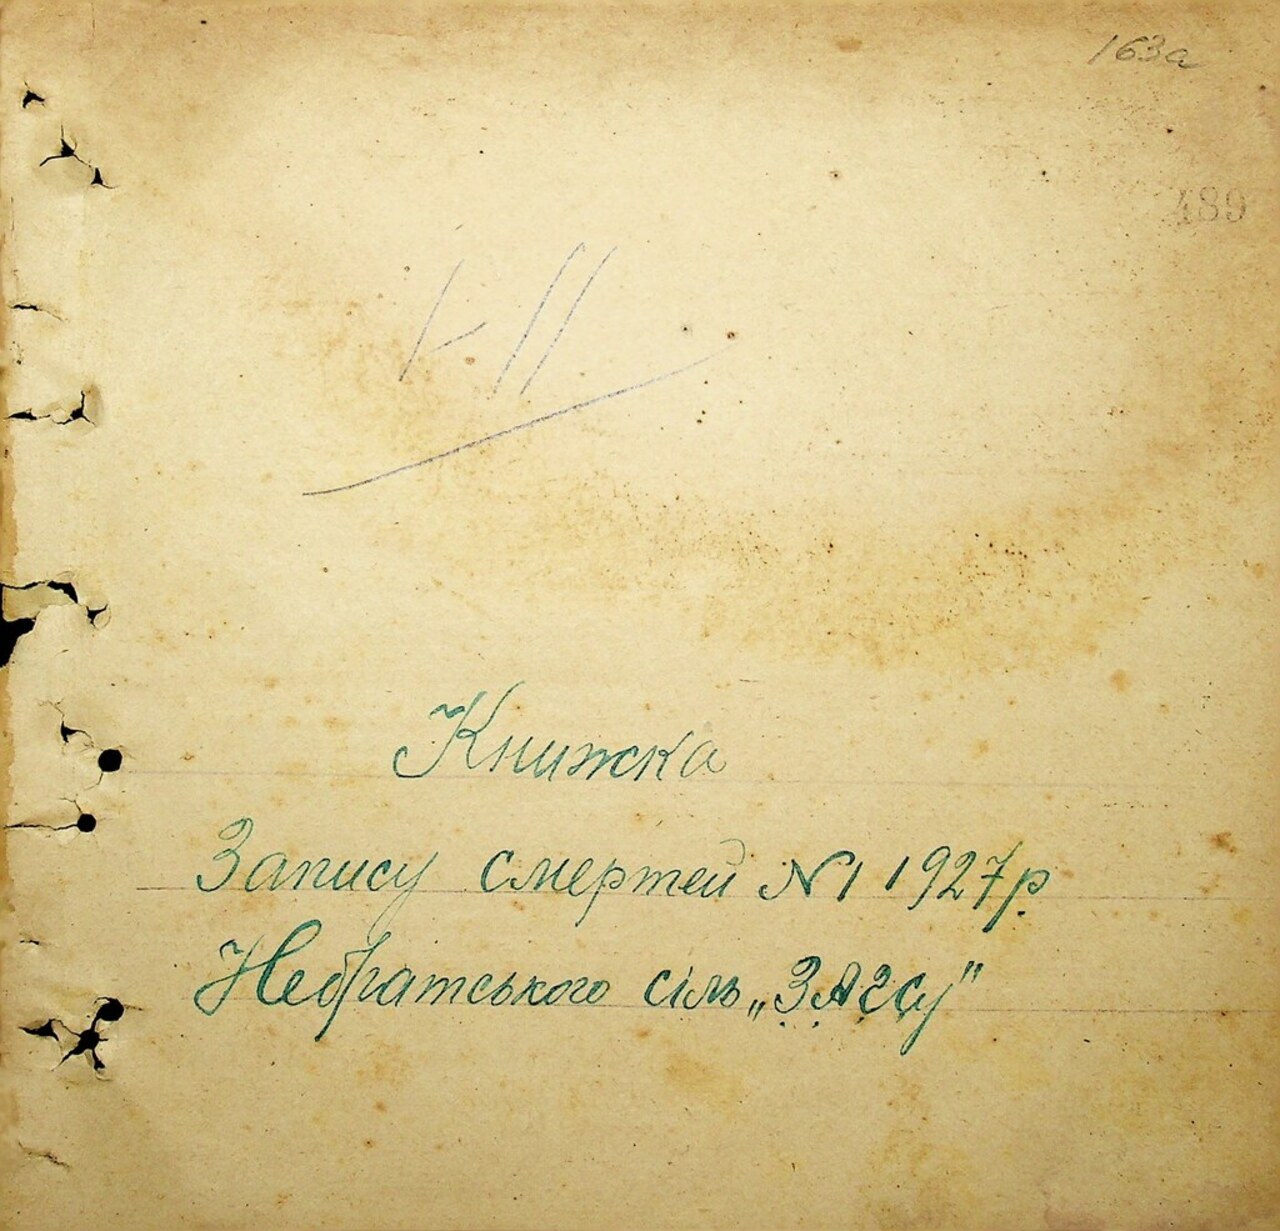 163а
489
I-II
Книжка
Запису смертей №1 1927р.
Небратського сіль „ЗАГСу"